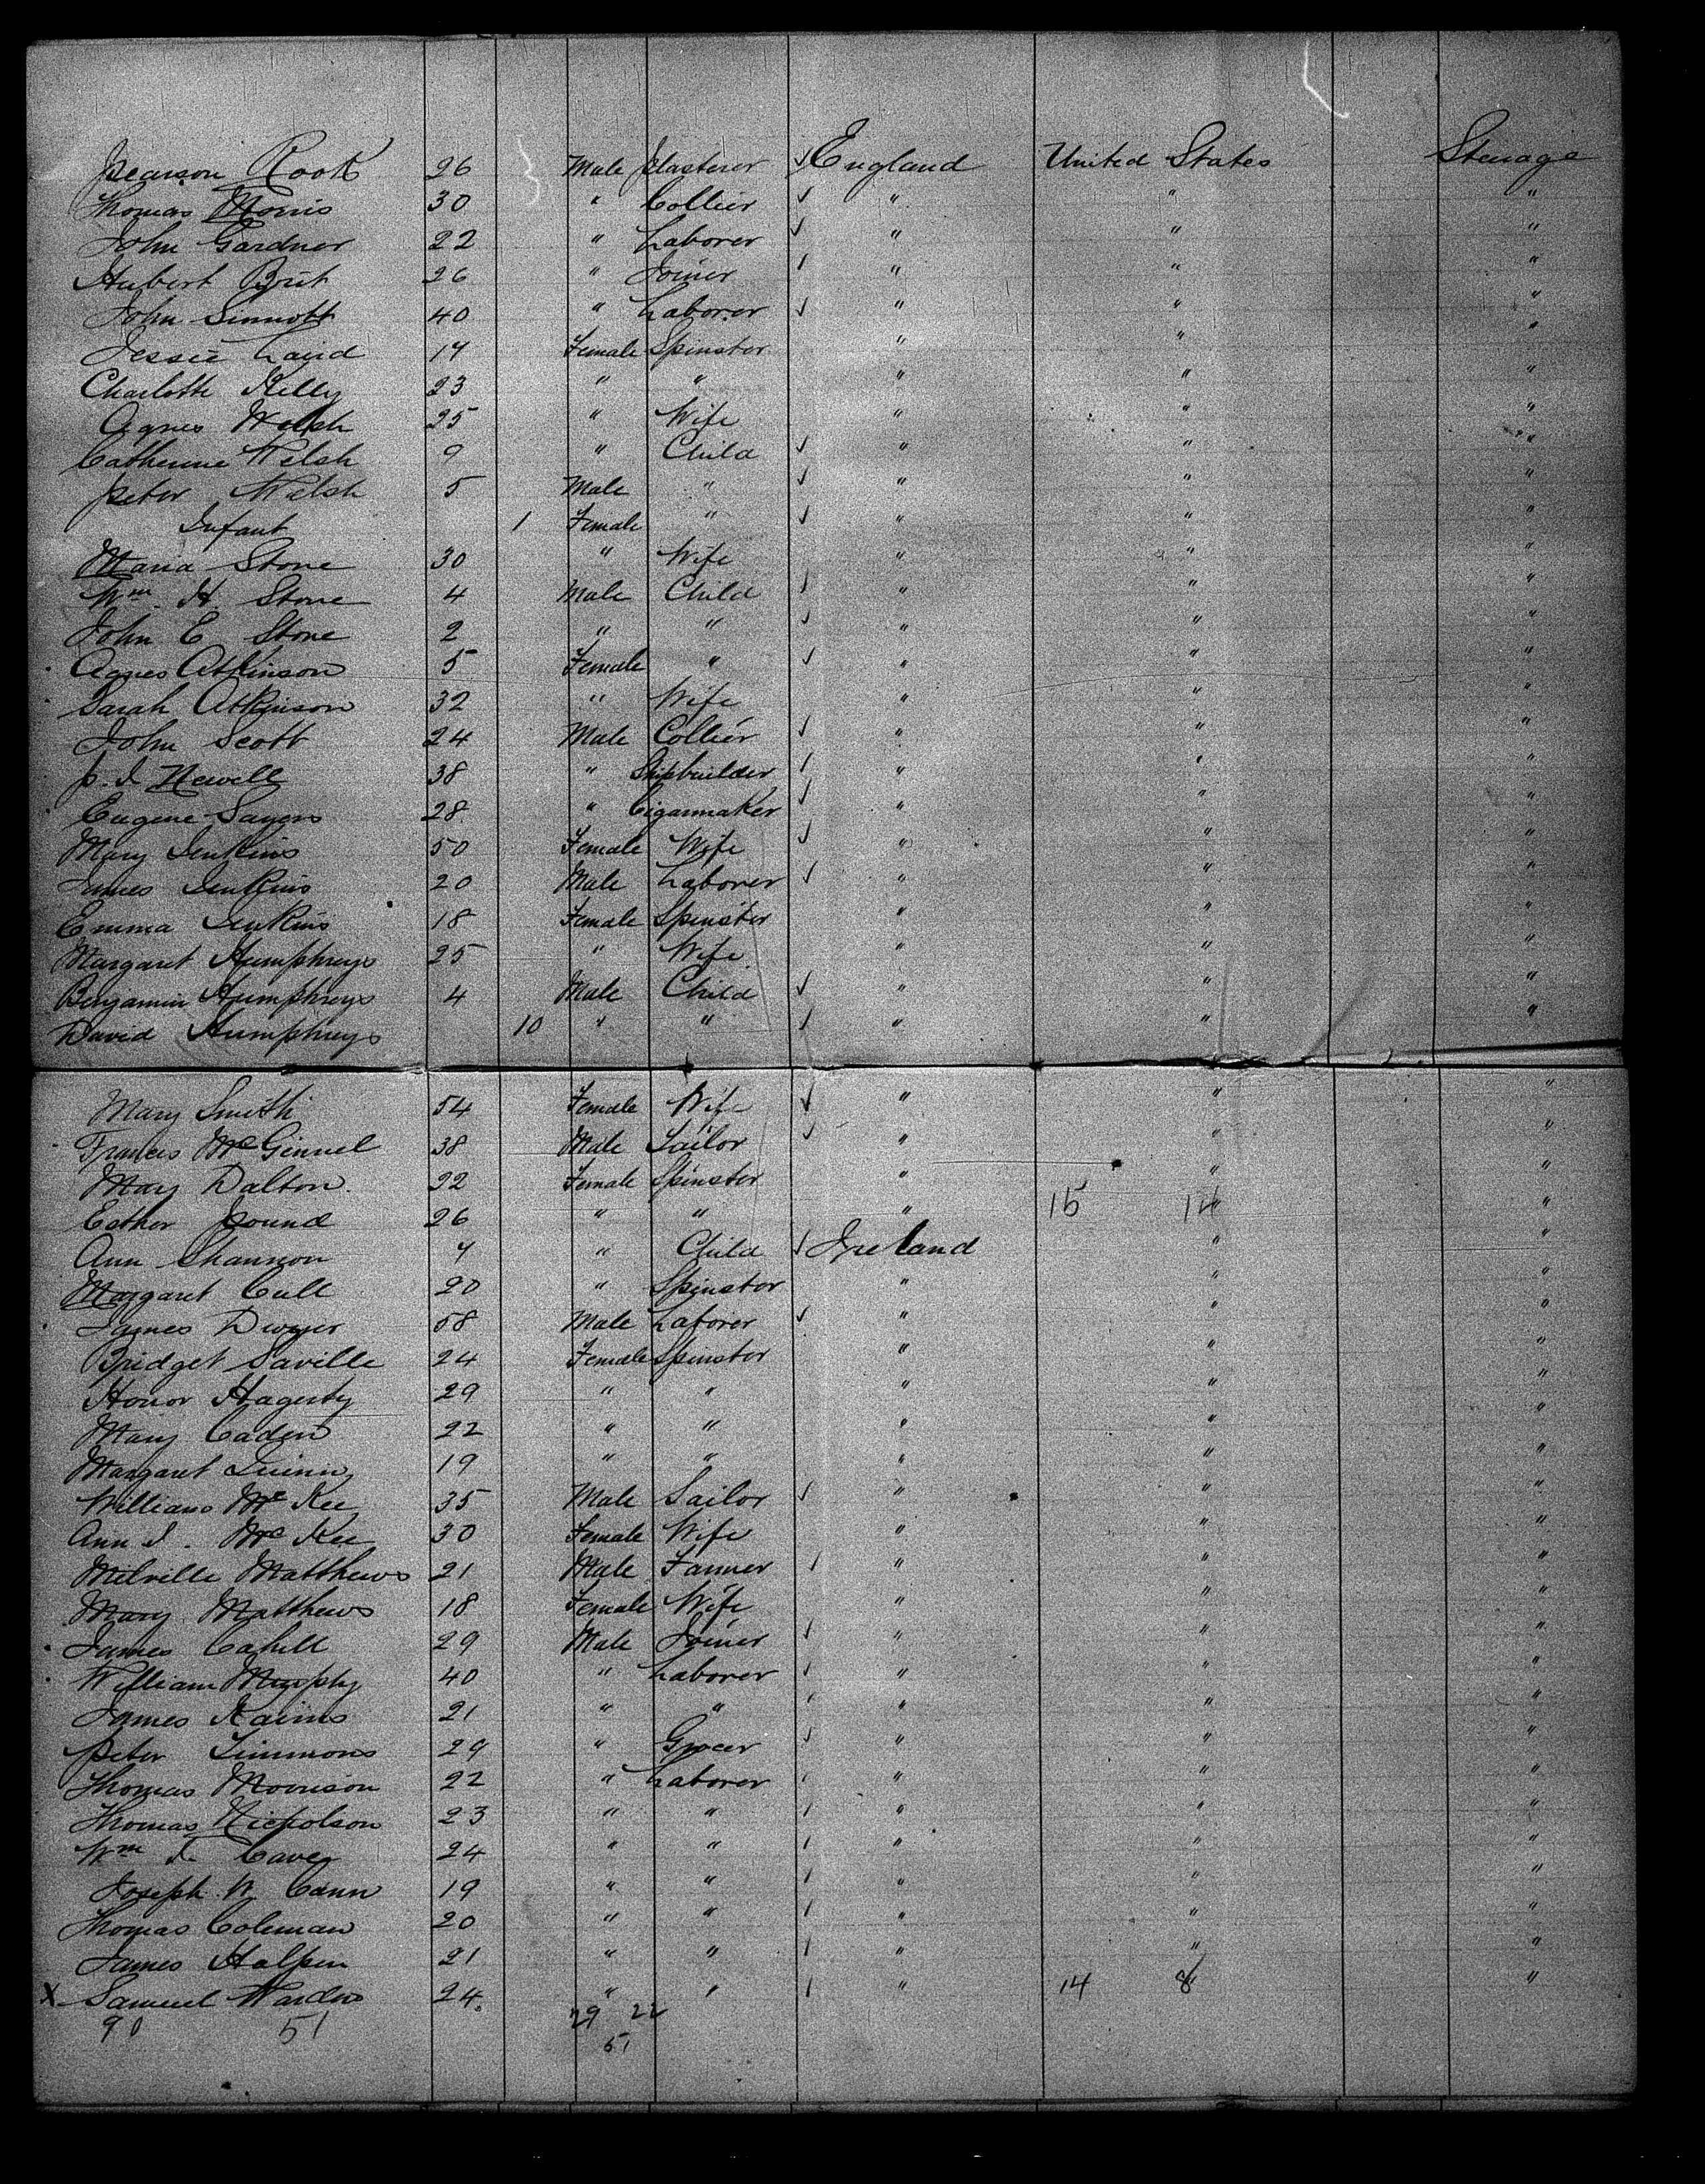 Pearson Rook 26 Male Plasterer ✓ England United States Steerage
Thomas Morris 30 " Collier ✓ " " "
John Gardner 22 " Laborer ✓ " " "
Hubert Brit 26 " Joiner ✓ " " "
John Sinnott 40 " Laborer ✓ " " "
Jessie Laird 14 Female Spinster " " "
Charlotte Kelly 23 " " " " "
Agnes Welsh 25 " Wife " " "
Catherine Welsh 9 " Child ✓ " " "
Peter Welsh 5 Male " ✓ " " "
Infant 1 Female " ✓ " " "
Maria Stone 30 " Wife " " "
Wm. H. Stone 4 Male Child ✓ " " "
John E Stone 2 " " ✓ " " "
Agnes Atkinson 5 Female " ✓ " " "
Sarah Atkinson 32 " Wife " " "
John Scott 24 Male Collier ✓ " " "
P. I. Newell 38 " Shipbuilder ✓ " " "
Eugene Sayers 28 " Cigarmaker ✓ " " "
Mary Jenkins 50 Female Wife ✓ " " "
James Jenkins 20 Male Laborer ✓ " " "
Emma Jenkins 18 Female Spinster " " "
Margaret Humphreys 25 " Wife " " "
Benjamin Humphreys 4 Male Child ✓ " " "
David Humphreys 10 " " ✓ " " "
Mary Smith 54 Female Wife ✓ " " "
Frances McGinnel 38 Male Sailor ✓ " " "
Mary Dalton 22 Female Spinster " " "
Esther Pound 26 " " " 15 14 " "
Ann Shannon 4 " Child ✓ Ireland " "
Margaret Cull 20 " Spinster " " "
James Dwyer 58 Male Laborer ✓ " " "
Bridget Saville 24 Female Spinster " " "
Honor Hagerty 29 " " " " "
Mary Caden 22 " " " " "
Margaret Quinn 19 " " " " "
William McKee 35 Male Sailor ✓ " " "
Ann J. McKee 30 Female Wife " " "
Melville Matthews 21 Male Farmer ✓ " " "
Mary Matthews 18 Female Wife " " "
James Cahill 29 Male Joiner ✓ " " "
William Murphy 40 " Laborer ✓ " " "
James Kairns 21 " " ✓ " " "
Peter Simmons 29 " Grocer ✓ " " "
Thomas Morrison 22 " Laborer ✓ " " "
Thomas Nicholson 23 " " ✓ " " "
Wm J. Cavey 24 " " ✓ " " "
Joseph W Cann 19 " " ✓ " " "
Thomas Coleman 20 " " ✓ " " "
James Halpin 21 " " ✓ " " "
X Samuel Warden 24 " " ✓ " 14 8 " "
90 51 29 22
51